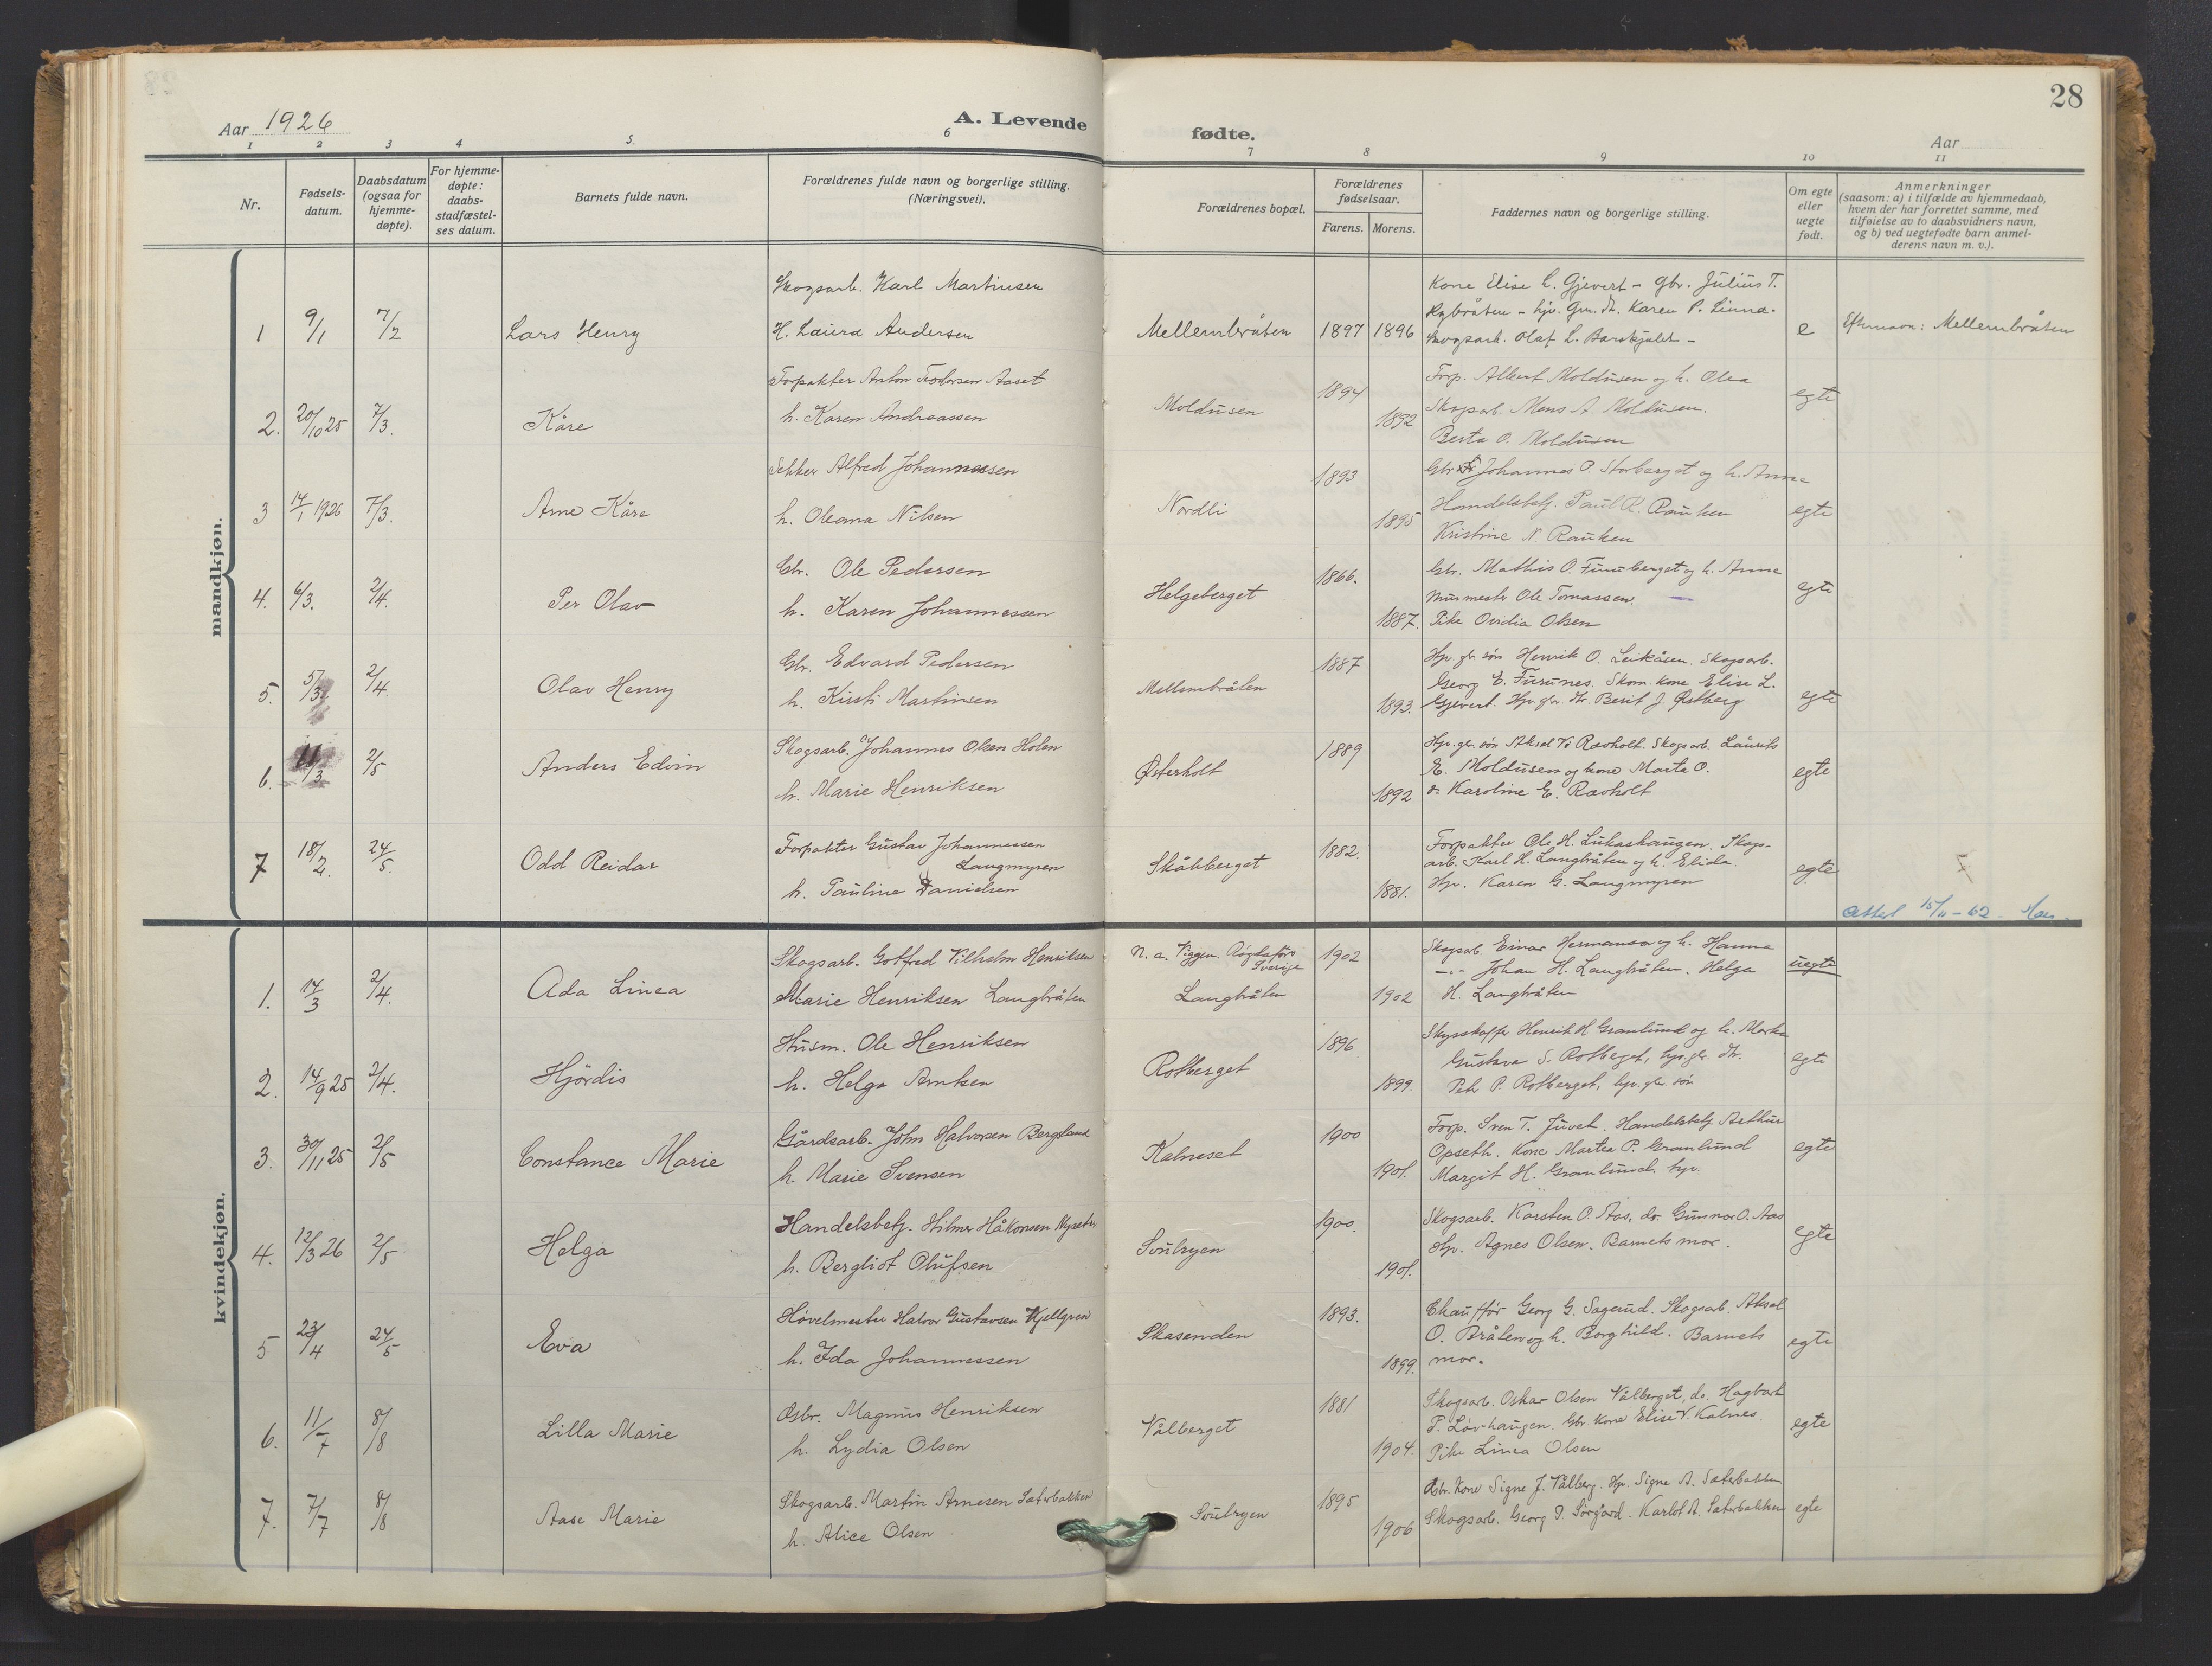 28
Aar 1926
A. Levende fødte.
Aar
1 2 3 4 5 6 7 8 9 10 11
Nr.
Fødsels-
datum.
Daabsdatum
(ogsaa for
hjemme-
døpte).
For hjemme-
døpte:
daabs-
stadfæstel-
ses datum.
Barnets fulde navn.
Forældrenes fulde navn og borgerlige stilling.
(Næringsvei).
Forældrenes bopæl.
Forældrenes
fødselsaar.
Farens. Morens.
Faddernes navn og borgerlige stilling.
Om egte
eller
uegte
født.
Anmerkninger
(saasom: a) i tilfælde av hjemmedaab,
hvem der har forrettet samme, med
tilføielse av to daabsvidners navn,
og b) ved uegtefødte barn anmel-
derens navn m. v.).
mandkjøn.
1 9/1 7/2 Lars Henry
Skogsarb. Karl Martinsen
H. Laura Andersen
Mellembråten 1897 1896
Kone Elise L. Gjevert - gbr. Julius T.
Rybråten - hjv. Gm. dt. Karen P. Linna.
Skogsarb. Olaf L. Barskjølet -
e
Efternavn: Mellembråten
2. 20/10 25 7/3. Kåre
Forpakter Anton Teodorsen Aaset
h. Karen Andreassen
Moldusen 1894 1892
Forp. Albert Moldusen og h. Olea
Skogsarb. Mens A. Moldusen.
Berta O. Moldusen
egte
3 14/1 1926 7/3. Arne Kåre
Alfred Johannessen
h. Oleana Nilsen
Nordli 1893 1895
Gbr. Johannes P. Storberget og h. Anna
Handelsbetj. Paul R. Rauken
Kristine N. Rauken
egte
4. 6/3. 2/4. Per Olav
Gbr. Ole Pedersen
h. Karen Johannessen
Helgeberget 1866. 1887.
Gbr. Mathis O. Furuberget og h. Anne
Murmester Ole Tomassen.
Pike Ovidia Olsen
egte
5. 5/3 2/4. Olav Henry
Gbr. Edvard Pedersen
h. Kirsti Martinsen
Mellembråten 1887 1893.
Hjv. gbr. søn Henrik O. Leikåsen. Skogsarb.
Georg E. Furunes. Skom. kone Elise L.
Gjevert. Hjv. gbr. dt. Berit J. Østberg
egte
6. 11/3 2/5 Anders Edvin
Skogsarb. Johannes Olsen Holen
h. Marie Henriksen
Østerholt 1889 1892
Hjv. gbr. søn Aksel K. Ravholt. Skogsarb. Laurits
E. Moldusen og kone Marta O.
Karoline E. Ravholt
egte
7 18/2. 24/5. Odd Reidar
Forpakter Gustav Johannessen
Langmyren
h. Pauline Danielsen
Skåkberget 1882. 1881.
Forpakter Ole H. Lukashaugen. Skogs-
arb. Karl H. Langbråten og h. Elida.
Hjv. Karen G. Langmyren
egte
Attest 15/11-62
kvindekjøn.
1. 14/3 2/4. Ada Linea
Skogsarb. Gotfred Vilhelm Henriksen
Marie Henriksen Langbråten
N. a. Viggen. Røgdafors
Sverige
Langbråten
1902 1902
Skogsarb. Einar Hermansen og h. Hanna
-"- Johan H. Langbråten. Helga
H. Langbråten
uegte
2. 14/9 25 2/4. Hjördis
Husm. Ole Henriksen
h. Helga Arntsen
Rotberget 1896 1899.
Skysskaffer Henrik H Granlund og h. Marte
Gustava S. Rotberget, hjv. gbr. dt.
Peter P. Rotberget, hjv. gbr. søn
egte
3. 30/11 25 2/5 Constance Marie
Gårdsarb. John Halvorsen Bergsland
h. Marie Svensen
Kalneset 1900 1901.
Forp. Sven T. Juvet. Handelsbetj. Arthur
Opseth. Kone Martea P. Granlund
Margit H. Granlund. hjv.
egte
4. 12/3 26 2/5 Helga
Handelsbetj. Hilmer Håkonsen Nyseter
h. Bergliot Olufsen
Svulryen 1900. 1901.
Skogsarb. Karsten O. Aas, do. Gunnar O. Aas
Hjv. Agnes Olsen. Barnets mor.
egte
5 23/4 24/5 Eva
Høvelmester Halvor Gustavsen Kjellgren
h. Ida Johannessen
Skasenden 1893. 1899.
Chaufför Georg G. Sagerud. Skogsarb. Aksel
O. Bråten og h. Borghild. Barnets
mor.
egte
6. 11/7 8/8 Lilla Marie
Gbr. Magnus Henriksen
h. Lydia Olsen
Vålberget 1881 1904.
Skogsarb. Oskar Olsen Vålberget, do. Hagbart
P. Løvhaugen. Gbr. kone Elise V. Kalnes.
Pike Linea Olsen
egte
7. 7/7 8/8 Aase Marie
Skogsarb. Martin Arnesen Sæterbakken
h. Alice Olsen
Svulryen 1895 1906
Gbr. kone Signe J. Vålberg. Hjv. Signe A. Sæterbakken
Skogsarb. Georg P. Sørgård. Karlot A. Sæterbakken
egte